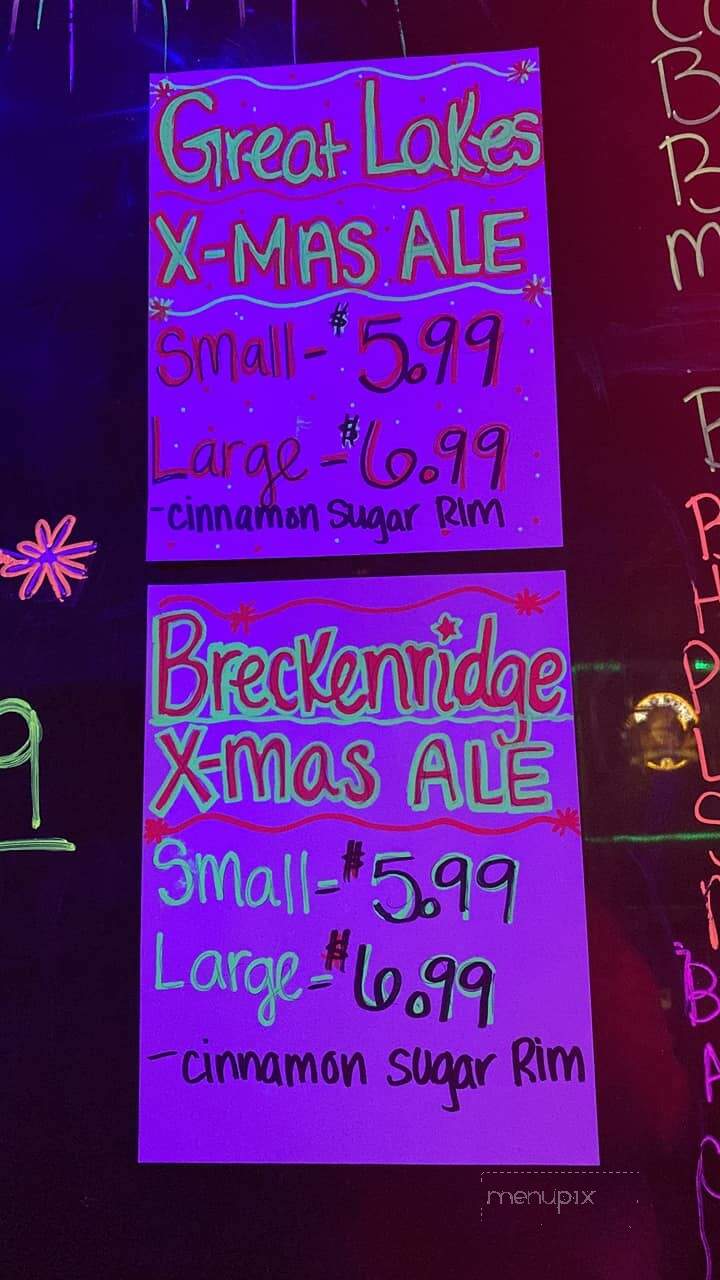 Great Lakes
X-MAS ALE
Small - $5.99
Large - $6.99
-cinnamon Sugar RIM
Breckenridge
X-mas ALE
Small - $5.99
Large - $6.99
-cinnamon sugar Rim
9
menupix